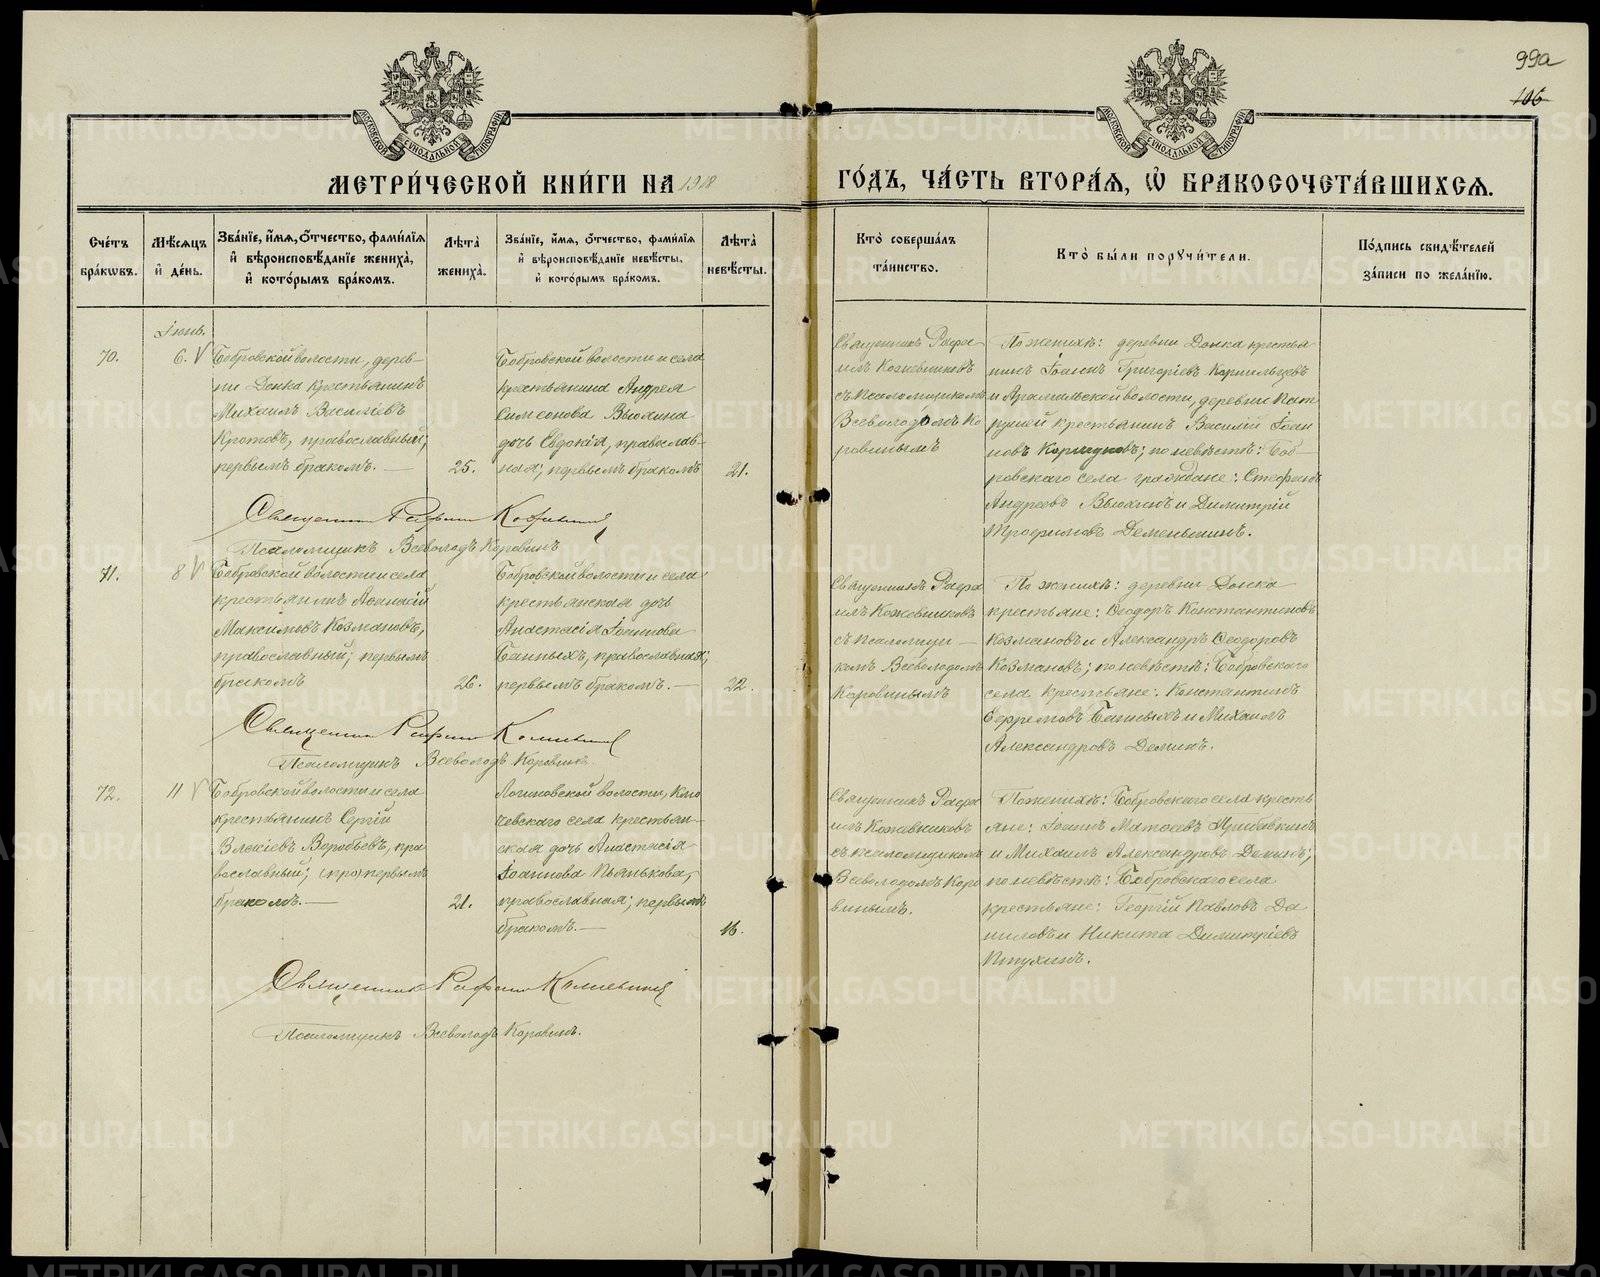 99а
106
МОСКОВСКОЙ СѴНОДАЛЬНОЙ ТИПОГРАФІИ
МОСКОВСКОЙ СѴНОДАЛЬНОЙ ТИПОГРАФІИ
МЕТРИ́ЧЕСКОЙ КНИ́ГИ НА 1918
ГО́ДЪ, ЧА́СТЬ ВТОРА́Я, Ѽ БРАКОСОЧЕТА́ВШИХСЯ.
Сче́тъ бра́кωвъ.
Мѣ́сяцъ и҆ де́нь.
Зва́нїе, и҆́мя, ѻ҆́тчество, фами́лїя и҆ вѣроисповѣ́данїе жениха̀, и҆ кото́рымъ бра́комъ.
Лѣ́та жениха̀.
Зва́нїе, и҆́мя, ѻ҆́тчество, фами́лїя и҆ вѣроисповѣ́данїе невѣ́сты, и҆ кото́рымъ бра́комъ.
Лѣ́та невѣ́сты.
Кто̀ соверша́лъ та́инство.
Кто̀ бы́ли порꙋчи́тели.
По́дпись свидѣ́телей за́писи по жела́нїю.
Іюнь.
70.
6. V
Бобровской волости, дерев-
ни Донка крестьянинъ
Михаилъ Василіевъ
Кротовъ, православный,
первымъ бракомъ.—
25.
Бобровской волости и села
крестьянина Андрея
Симеонова Вьюхина
дочь Евдокія, православ-
ная; первымъ бракомъ
21.
Священникъ Рафа-
илъ Кожевниковъ
съ псаломщикомъ
Всеволодомъ Ко
ровинымъ
По женихѣ: деревни Донка крестья-
нинъ Іоаннъ Григоріевъ Кормильцевъ
и Арамильской волости, деревни Пат
рушей крестьянинъ Василій Іоан
новъ Коршуновъ; по невѣстѣ: Боб-
ровскаго села граждане: Стефанъ
Андреевъ Вьюхинъ и Димитрій
Трофимовъ Деменьшинъ.
Священникъ Рафаилъ Кожевниковъ
Псаломщикъ Всеволодъ Коровинъ
71.
8 V
Бобровской волости и села
крестьянинъ Аѳанасій
Максимовъ Козмановъ,
православный; первымъ
бракомъ
26.
Бобровской волости и села
крестьянская дочь
Анастасія Іоаннова
Банныхъ, православная;
первымъ бракомъ.—
22.
Священникъ Рафа
илъ Кожевниковъ
съ псаломщи-
комъ Всеволодомъ
Коровинымъ
По женихѣ: деревни Донка
крестьяне: Ѳеодоръ Константиновъ
Козмановъ и Александръ Ѳеодоровъ
Козмановъ; по невѣстѣ: Бобровскаго
села крестьяне: Константинъ
Ефремовъ Банныхъ и Михаилъ
Александровъ Деминъ.
Священникъ Рафаилъ Кожевниковъ
Псаломщикъ Всеволодъ Коровинъ
72.
11 V
Бобровской волости и села
крестьянинъ Сергій
Власіевъ Воробьевъ, пра
вославный; (про) первымъ
бракомъ.—
21.
Логиновской волости, Клю
чевскаго села крестьян-
ская дочь Анастасія
Іоаннова Пьянькова,
православная; первымъ
бракомъ.—
16.
Священникъ Рафа
илъ Кожевниковъ
съ псаломщикомъ
Всеволодомъ Коро
винымъ.
По женихѣ: Бобровскаго села кресть
яне: Іоаннъ Матѳеевъ
и Михаилъ Александровъ Деминъ;
по невѣстѣ: Бобровскаго села
крестьяне: Георгій Павловъ Да
ниловъ и Никита Димитріевъ
Птухинъ.
Священникъ Рафаилъ Кожевниковъ
Псаломщикъ Всеволодъ Коровинъ.
METRIKI.GASO-URAL.RU